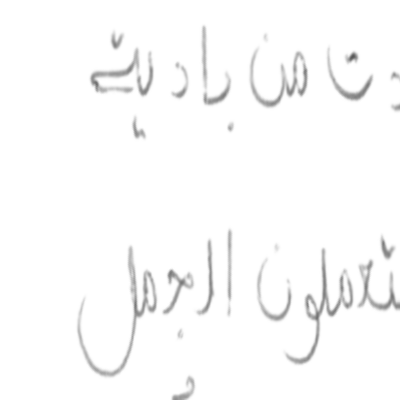 ت من بادية
تعملون الجمل